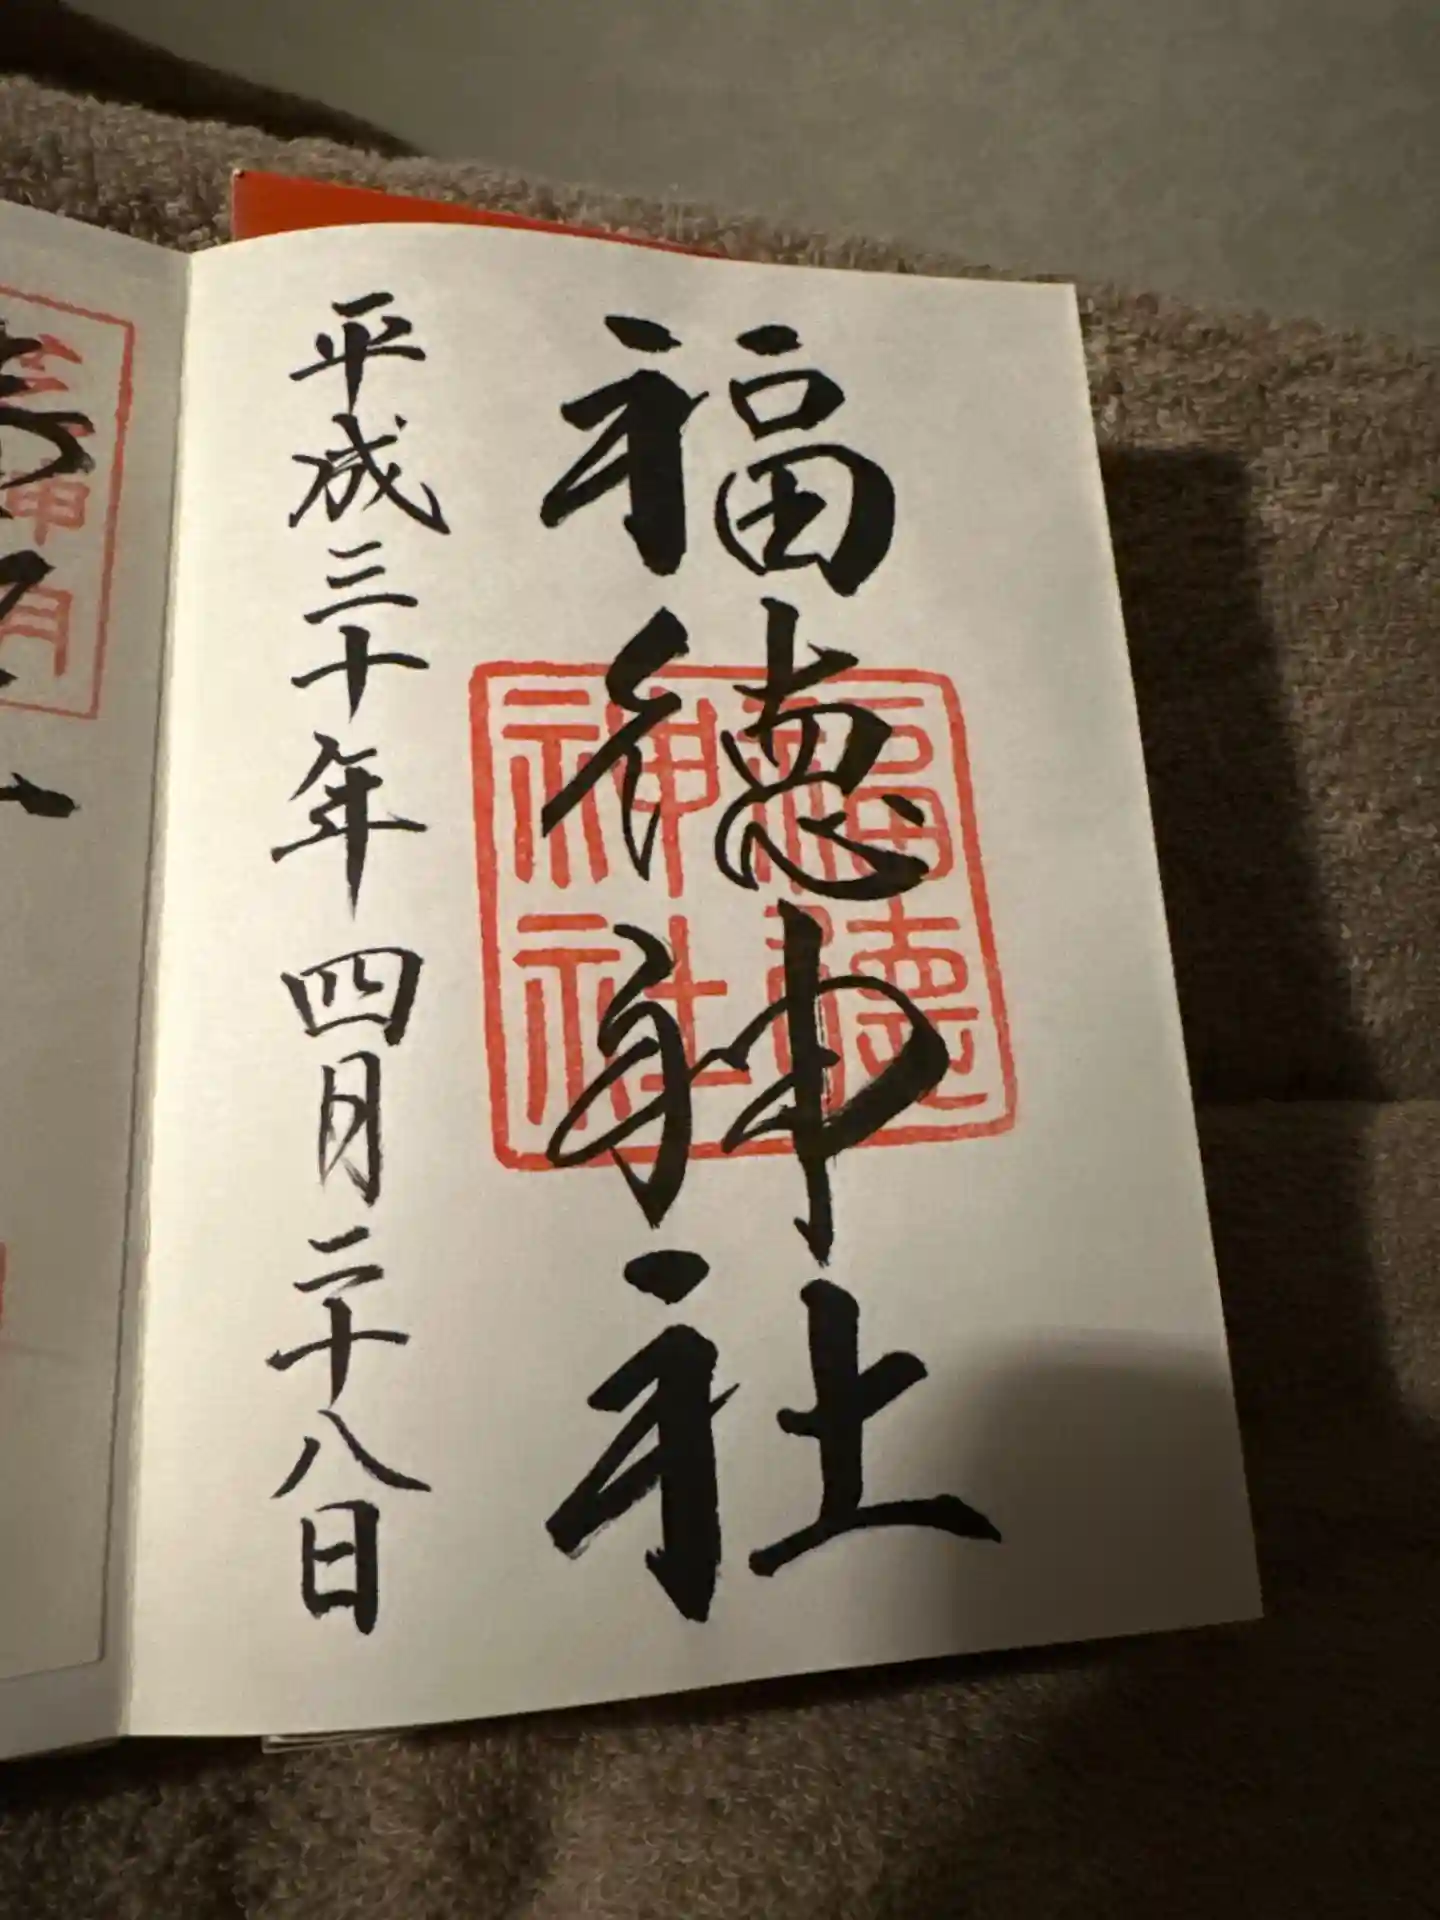 福徳神社
福徳
神社
平成三十年四月二十八日